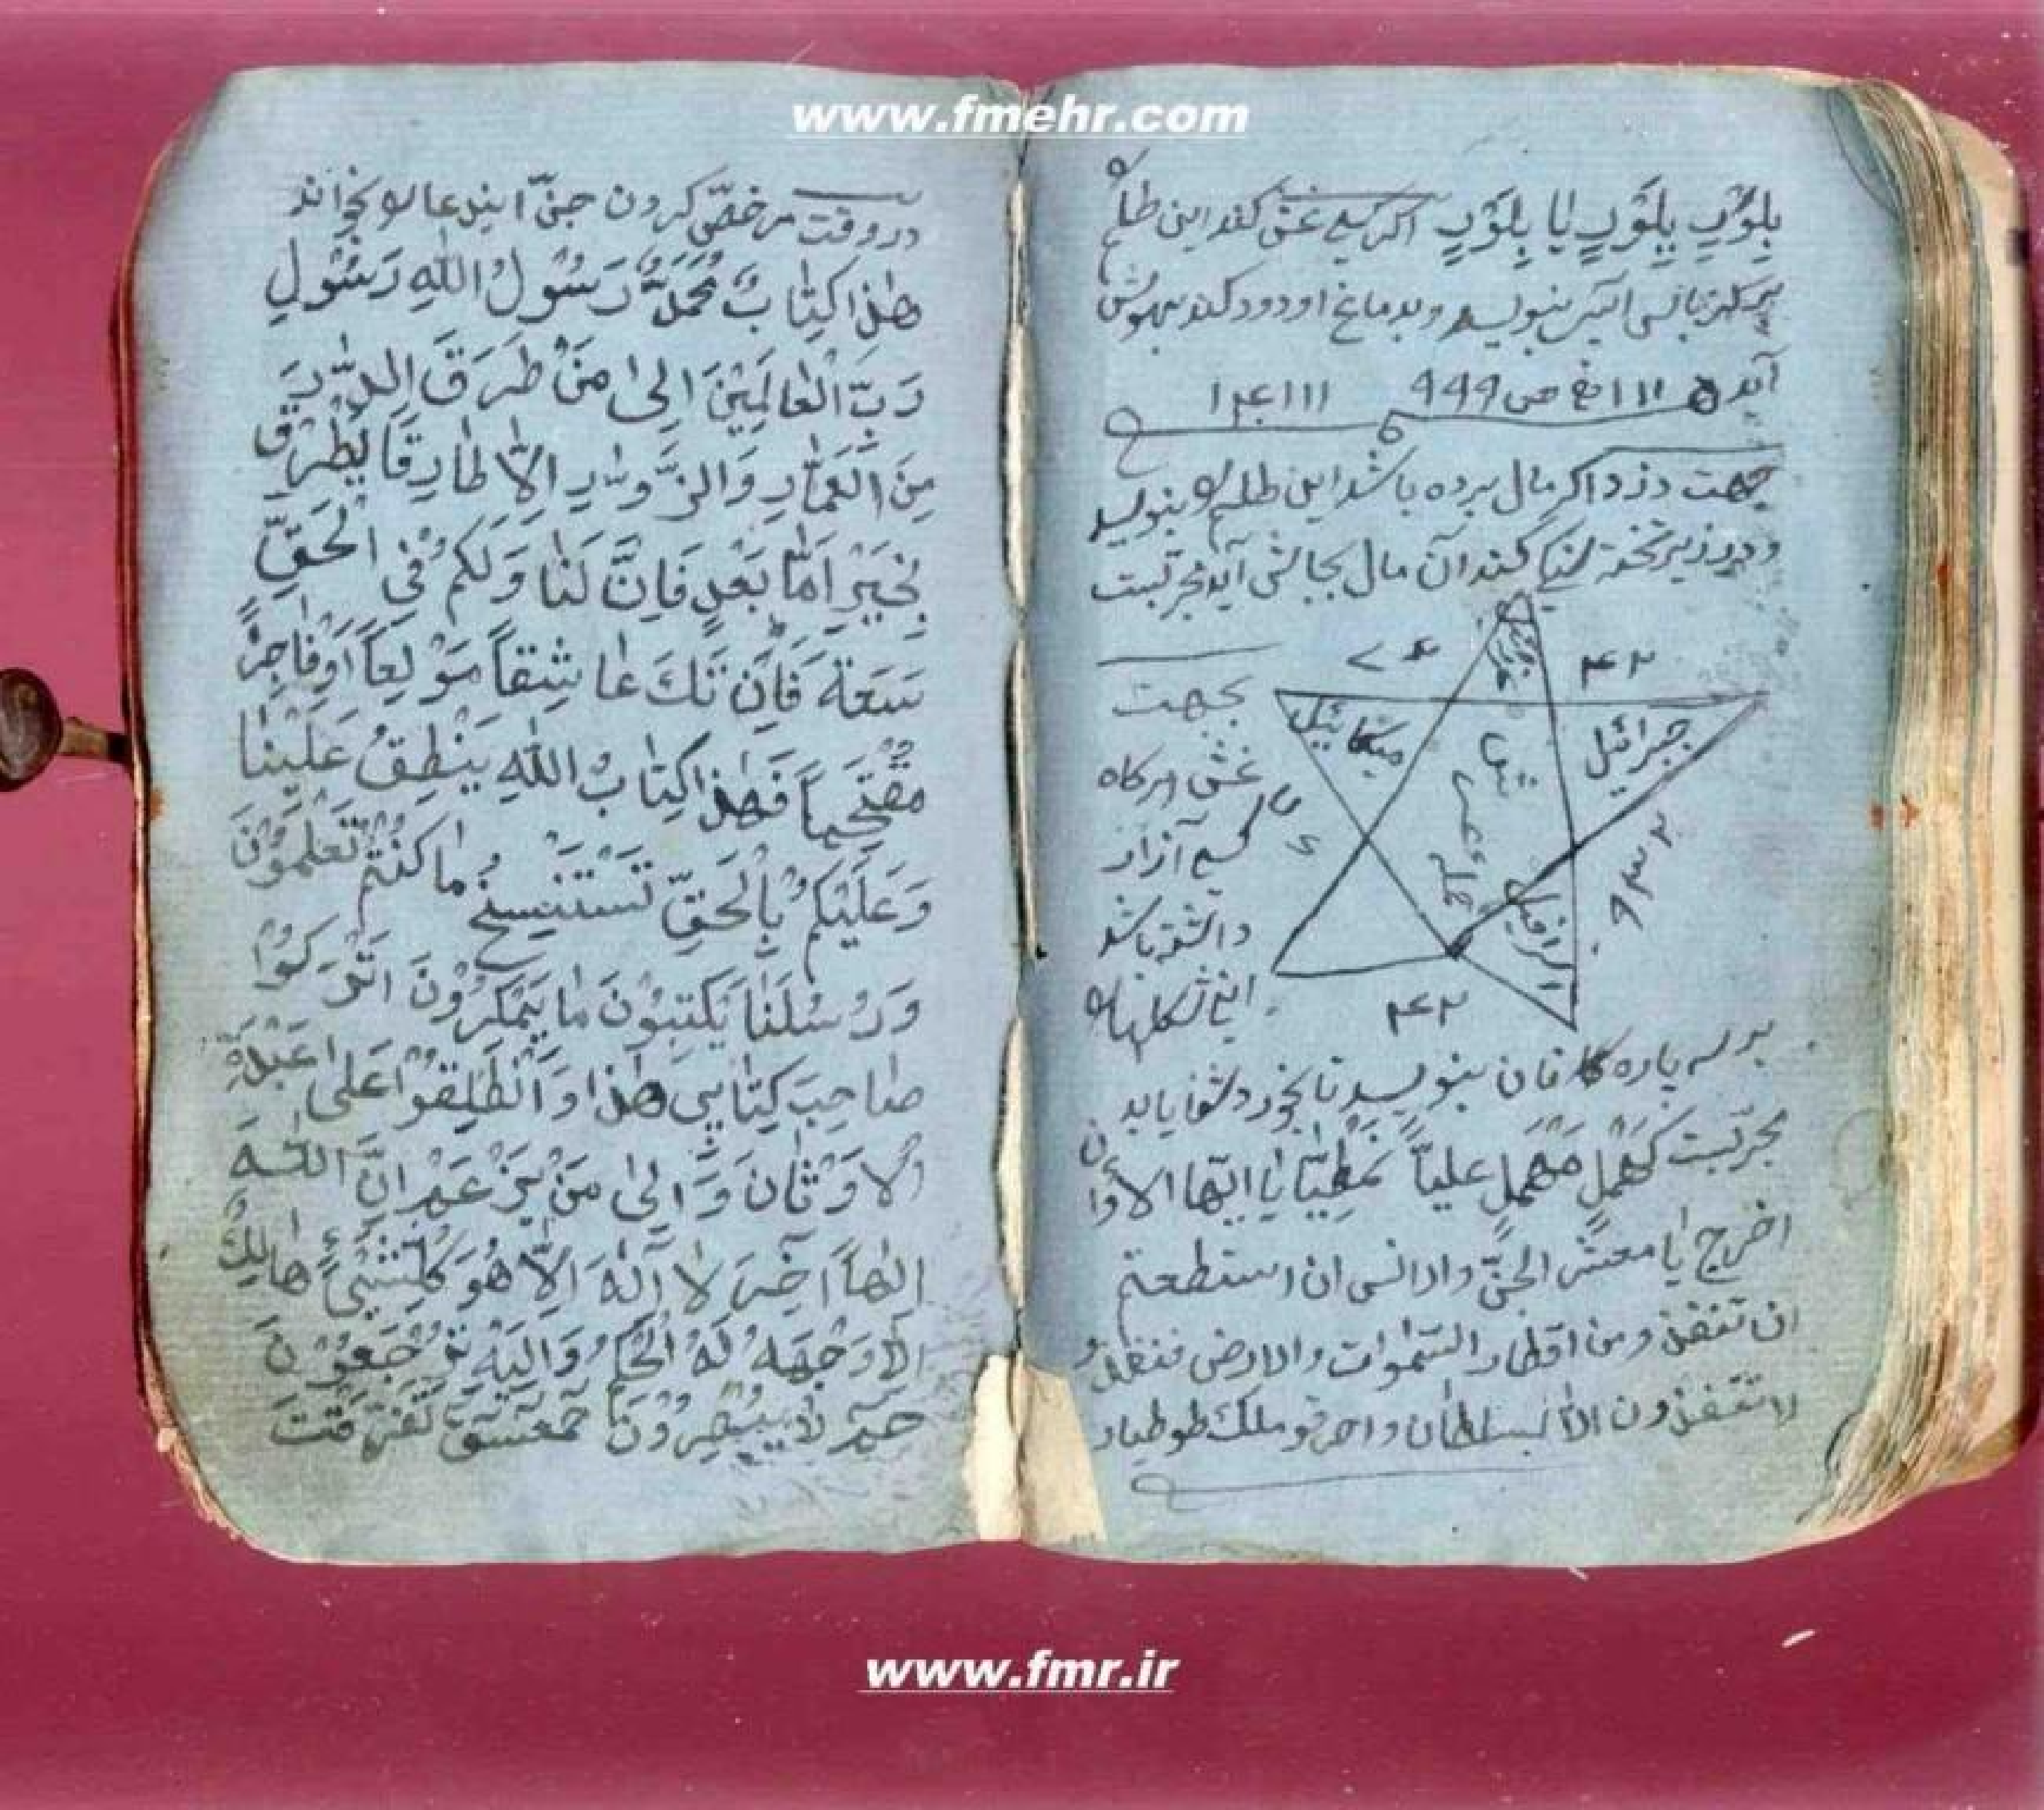 www.fmehr.com
بِلَوْبٍ بِلَوْبٍ یٰا بِلَوْبٍ اکر کسی غش کند این طلسم
بنویسد و بدماغ او دود کند بهوش
آید
جهت دزد اکر مال برده باشد این طلسم بنویسد
و در زیر تخته کند آن مال بجایش آید مجربست
۴۲
جبرائیل
میکائیل
عزرائیل
اسرافیل
۲۴۲
بجهت
غش هرکاه
کسی آزار
داشته باشد
این شکلها
بر سه پاره کاغذ بنویسد تا بخورد شفا یابد
مجربست کَهْمَلٍ مَهْمَلٍ علیاً یٰا ایّها الا
اخرج یٰا معشر الجنّ والانس ان استطعتم
ان تنفذو من اقطار السّمٰوات والارض فنفذو
لا تنفذون الّا بسلطان
در وقت مرخصّی کردن جنّ بخواند
هٰذا کِتٰابٌ مُحَمَّدٌ رَسُوْلُ اللّٰهِ رَسُوْلِ
رَبِّ الْعٰالَمِیْنَ اِلیٰ مَنْ طَرَقَ الدّٰارَ
مِنَ الْعُمّٰارِ وَالزُّوّٰارِ اِلّاٰ طٰارِقًا یَطْرُقُ
بِخَیْرٍ اَمّٰا بَعْدٍ فَاِنَّ لَنٰا وَلَکُمْ فِی الْحَقِّ
سَعَةً فَاِنْ تَکَ عٰاشِقاً مَوْلِعاً اَوْفٰاجِرًا
مُقْتَحِماً فَهٰذا کِتٰابُ اللّٰهِ یَنْطِقُ عَلَیْنٰا
وَعَلَیْکُمْ بِالْحَقِّ نَسْتَنْسِخُ مٰا کُنْتُمْ تَعْلَمُوْنَ
وَرُسُلَنٰا یَکْتِبُوْنَ مٰا یَمْکُرُوْنَ اتْرَکُوْا
صٰاحِبَ کِتٰابِی هٰذا وَانْطَلِقُوْا عَلی عَبَدَةِ
الاَوْثٰانَ وَاِلیٰ مَنْ یَزْعَمُ اِنَّ اللّٰه
اِلٰهاً آخَرَ لٰا اِلٰهَ اِلّاٰ هُوَ کُلِّشَیْئٍ هٰالِكُ
اِلّا وَجْهَهُ لَهُ الْحُکْمُ وَاِلَیْهِ تُرْجَعُوْنَ
حٰمٓ لٰا یُبْصِرُوْنَ حٰمٓعٓسٓقٓ تَفَرَّقَتَ
www.fmr.ir